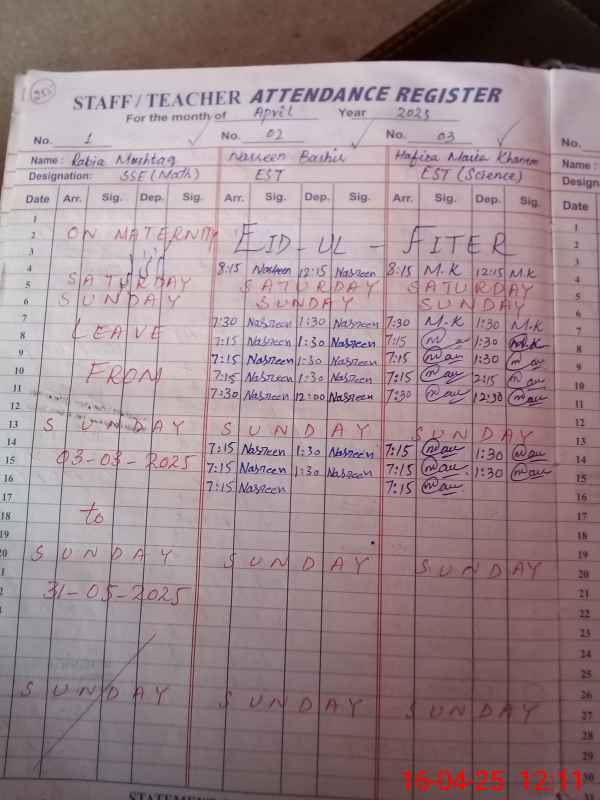 STAFF/TEACHER ATTENDANCE REGISTER
For the month of April Year 2025
No. 1 No. 02 No. 03 No.
Name: Rabia Mushtaq Nasreen Bashir Hafiza Maira Khanam Name:
Designation: SSE (Math) EST EST (Science) Design
Date Arr. Sig. Dep. Sig. Arr. Sig. Dep. Sig. Arr. Sig. Dep. Sig. Date
1 1
2 ON MATERNITY EID-UL-FITER 2
3 3
4 8:15 Nasreen 12:15 Nasreen 8:15 M.K 12:15 M.K 4
5 SATURDAY SATURDAY SATURDAY 5
6 SUNDAY SUNDAY SUNDAY 6
7 7:30 Nasreen 1:30 Nasreen 7:30 M.K 1:30 M.K 7
8 LEAVE 7:15 Nasreen 1:30 Nasreen 7:15 1:30 M.K 8
9 7:15 Nasreen 1:30 Nasreen 7:15 1:30 9
10 FROM 7:15 Nasreen 1:30 Nasreen 7:15 2:15 10
11 7:30 Nasreen 12:00 Nasreen 7:30 12:30 11
12 12
13 SUNDAY SUNDAY SUNDAY 13
14 7:15 Nasreen 1:30 Nasreen 7:15 1:30 14
15 03-03-2025 7:15 Nasreen 1:30 Nasreen 7:15 1:30 15
16 7:15 Nasreen 7:15 16
17 17
18 to 18
19
20 SUNDAY SUNDAY SUNDAY 20
1 21
2 31-05-2025 22
23
24
25
SUNDAY SUNDAY SUNDAY 26
27
28
29
30
STATEMENT
16-04-25 12:11